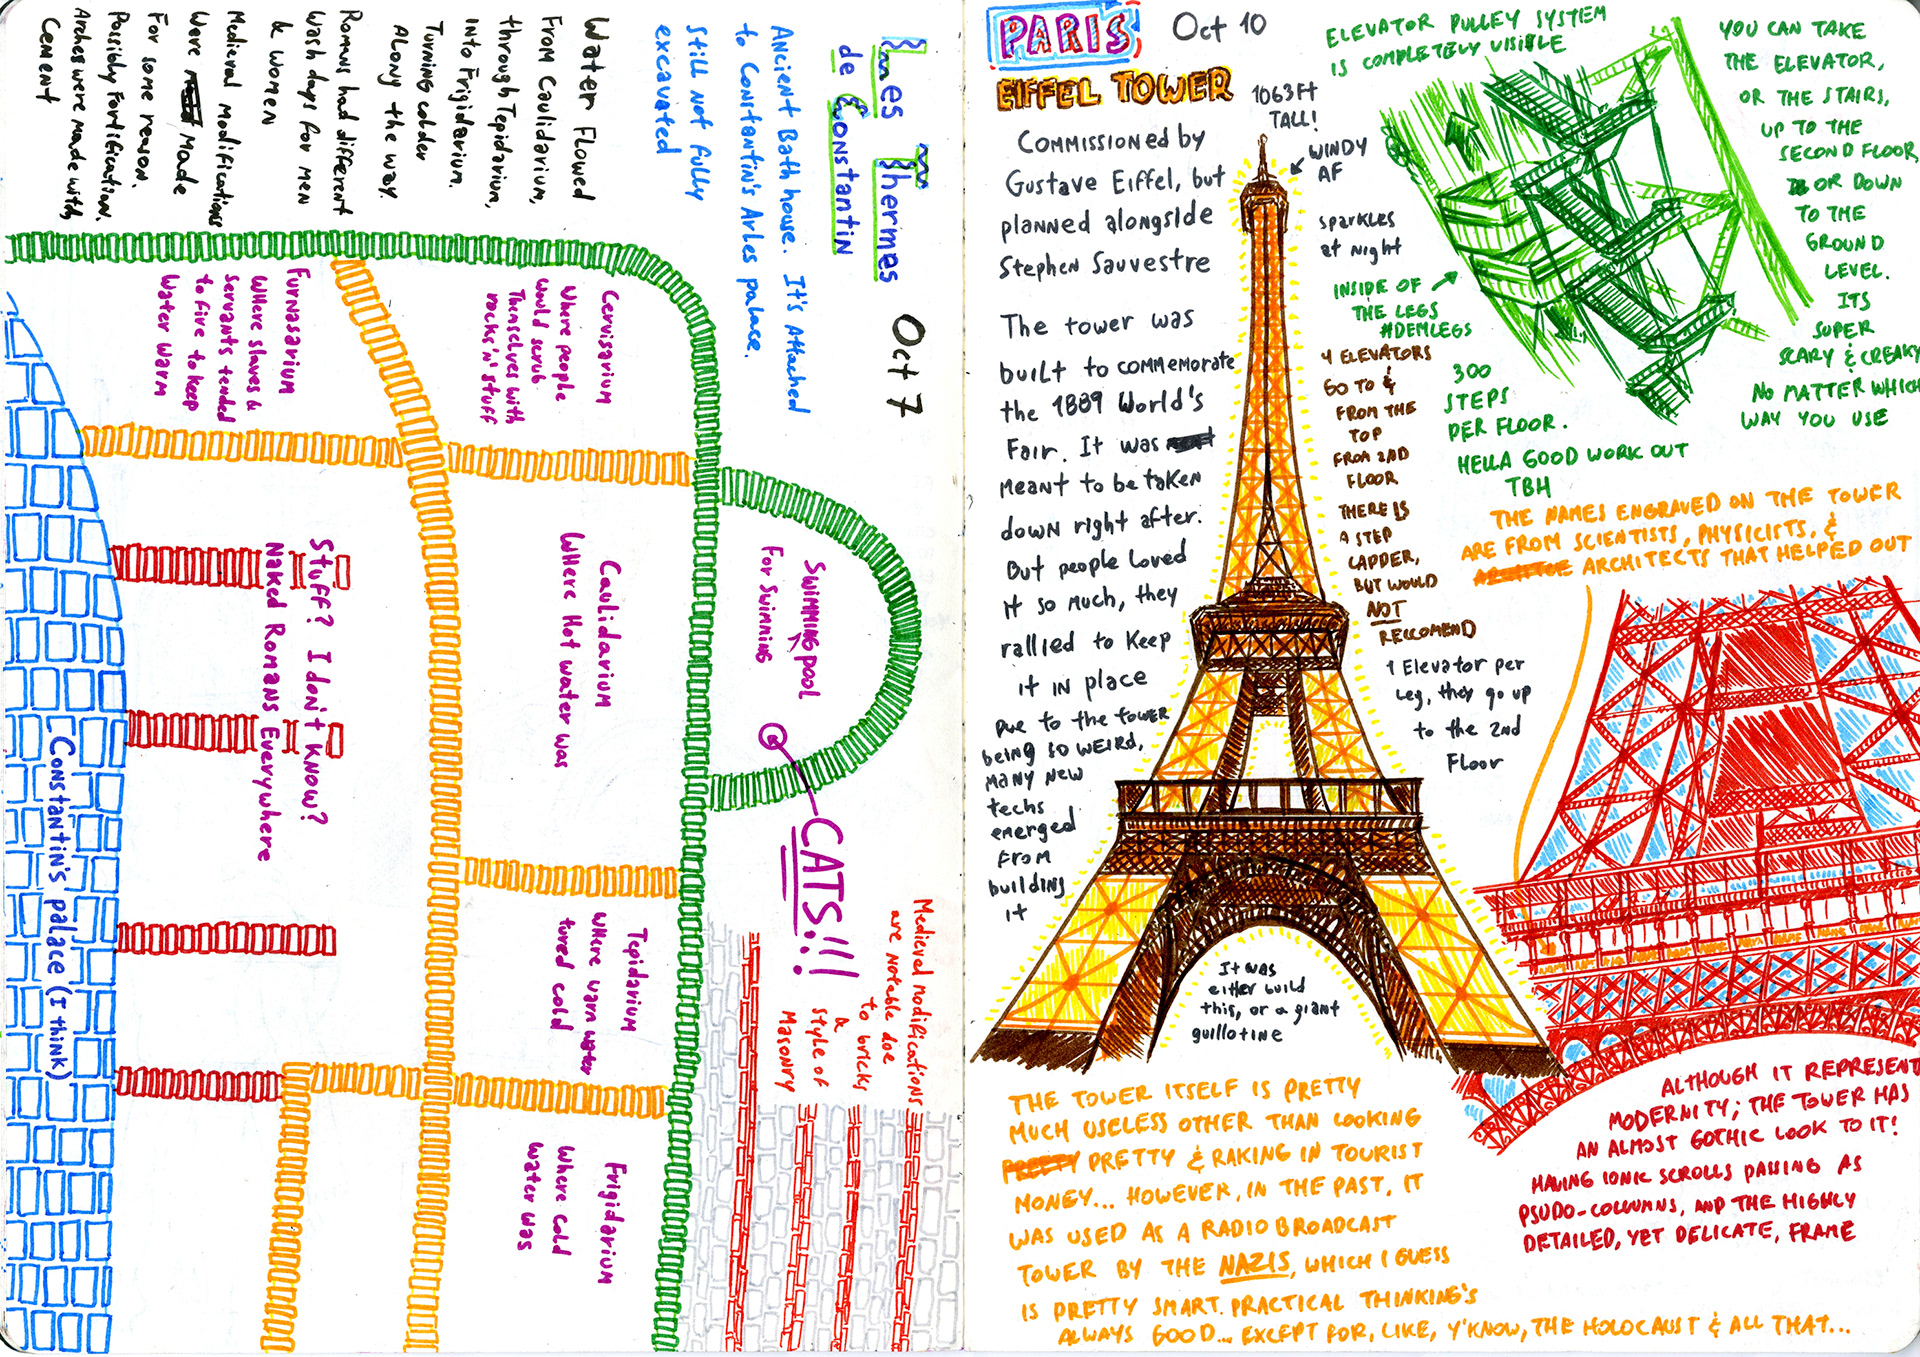 Les Thermes
de Constantin
Oct 7
Ancient Bath house. It's Attached
to Constantin's Arles palace.
Still not fully
excavated
Water Flowed
From Caulidarium,
through Tepidarium,
into Frigidarium.
Turning colder
Along the way.
Romans had different
Wash days for men
& women
Medieval Modifications
Were made
For some reason.
Possibly Fortification.
Arches were made with
Cement
Cervisarium
Where people
would scrub
Themselves with
rocks 'n' stuff
Furnasarium
Where slaves &
servants tended
to fire to keep
Water warm
Swimming pool
For swimming
CATS!!!
Caulidarium
Where Hot water was
Stuff? I don't know?
Naked Romans Everywhere
Tepidarium
Where warm water
tured cold
Frigidarium
Where cold
water was
Constantin's palace (I think)
Medieval modifications
are notable doe
to bricks
&
style of
Masonry
PARIS
Oct 10
EIFFEL TOWER
Commissioned by
Gustave Eiffel, but
planned alongside
Stephen Sauvestre
The tower was
built to commemorate
the 1889 World's
Fair. It was
meant to be taken
down right after.
But people loved
it so much, they
rallied to keep
it in place
Due to the tower
being so weird,
many new
techs
emerged
from
building
it
1063 Ft
TALL!
WINDY
AF
sparkles
at night
INSIDE OF
THE LEGS
#DEMLEGS
4 ELEVATORS
GO TO &
FROM THE
TOP
FROM 2ND
FLOOR
THERE IS
A STEP
LADDER,
BUT WOULD
NOT
RECCOMEND
1 Elevator per
Leg, they go up
to the 2nd
Floor
It was
either build
this, or a giant
guillotine
ELEVATOR PULLEY SYSTEM
IS COMPLETELY VISIBLE
YOU CAN TAKE
THE ELEVATOR,
OR THE STAIRS,
UP TO THE
SECOND FLOOR,
OR DOWN
TO THE
GROUND
LEVEL.
ITS
SUPER
SCARY & CREAKY
NO MATTER WHICH
WAY YOU USE
300
STEPS
PER FLOOR.
HELLA GOOD WORK OUT
TBH
THE NAMES ENGRAVED ON THE TOWER
ARE FROM SCIENTISTS, PHYSICISTS, &
ARCHITECTS THAT HELPED OUT
ALTHOUGH IT REPRESENT
MODERNITY; THE TOWER HAS
AN ALMOST GOTHIC LOOK TO IT!
HAVING IONIC SCROLLS PASSING AS
PSUDO-COLUMNS, AND THE HIGHLY
DETAILED, YET DELICATE, FRAME
THE TOWER ITSELF IS PRETTY
MUCH USELESS OTHER THAN LOOKING
PRETTY & RAKING IN TOURIST
MONEY... HOWEVER, IN THE PAST, IT
WAS USED AS A RADIO BROADCAST
TOWER BY THE NAZIS, WHICH I GUESS
IS PRETTY SMART. PRACTICAL THINKING'S
ALWAYS GOOD... EXCEPT FOR, LIKE, Y'KNOW, THE HOLOCAUST & ALL THAT...